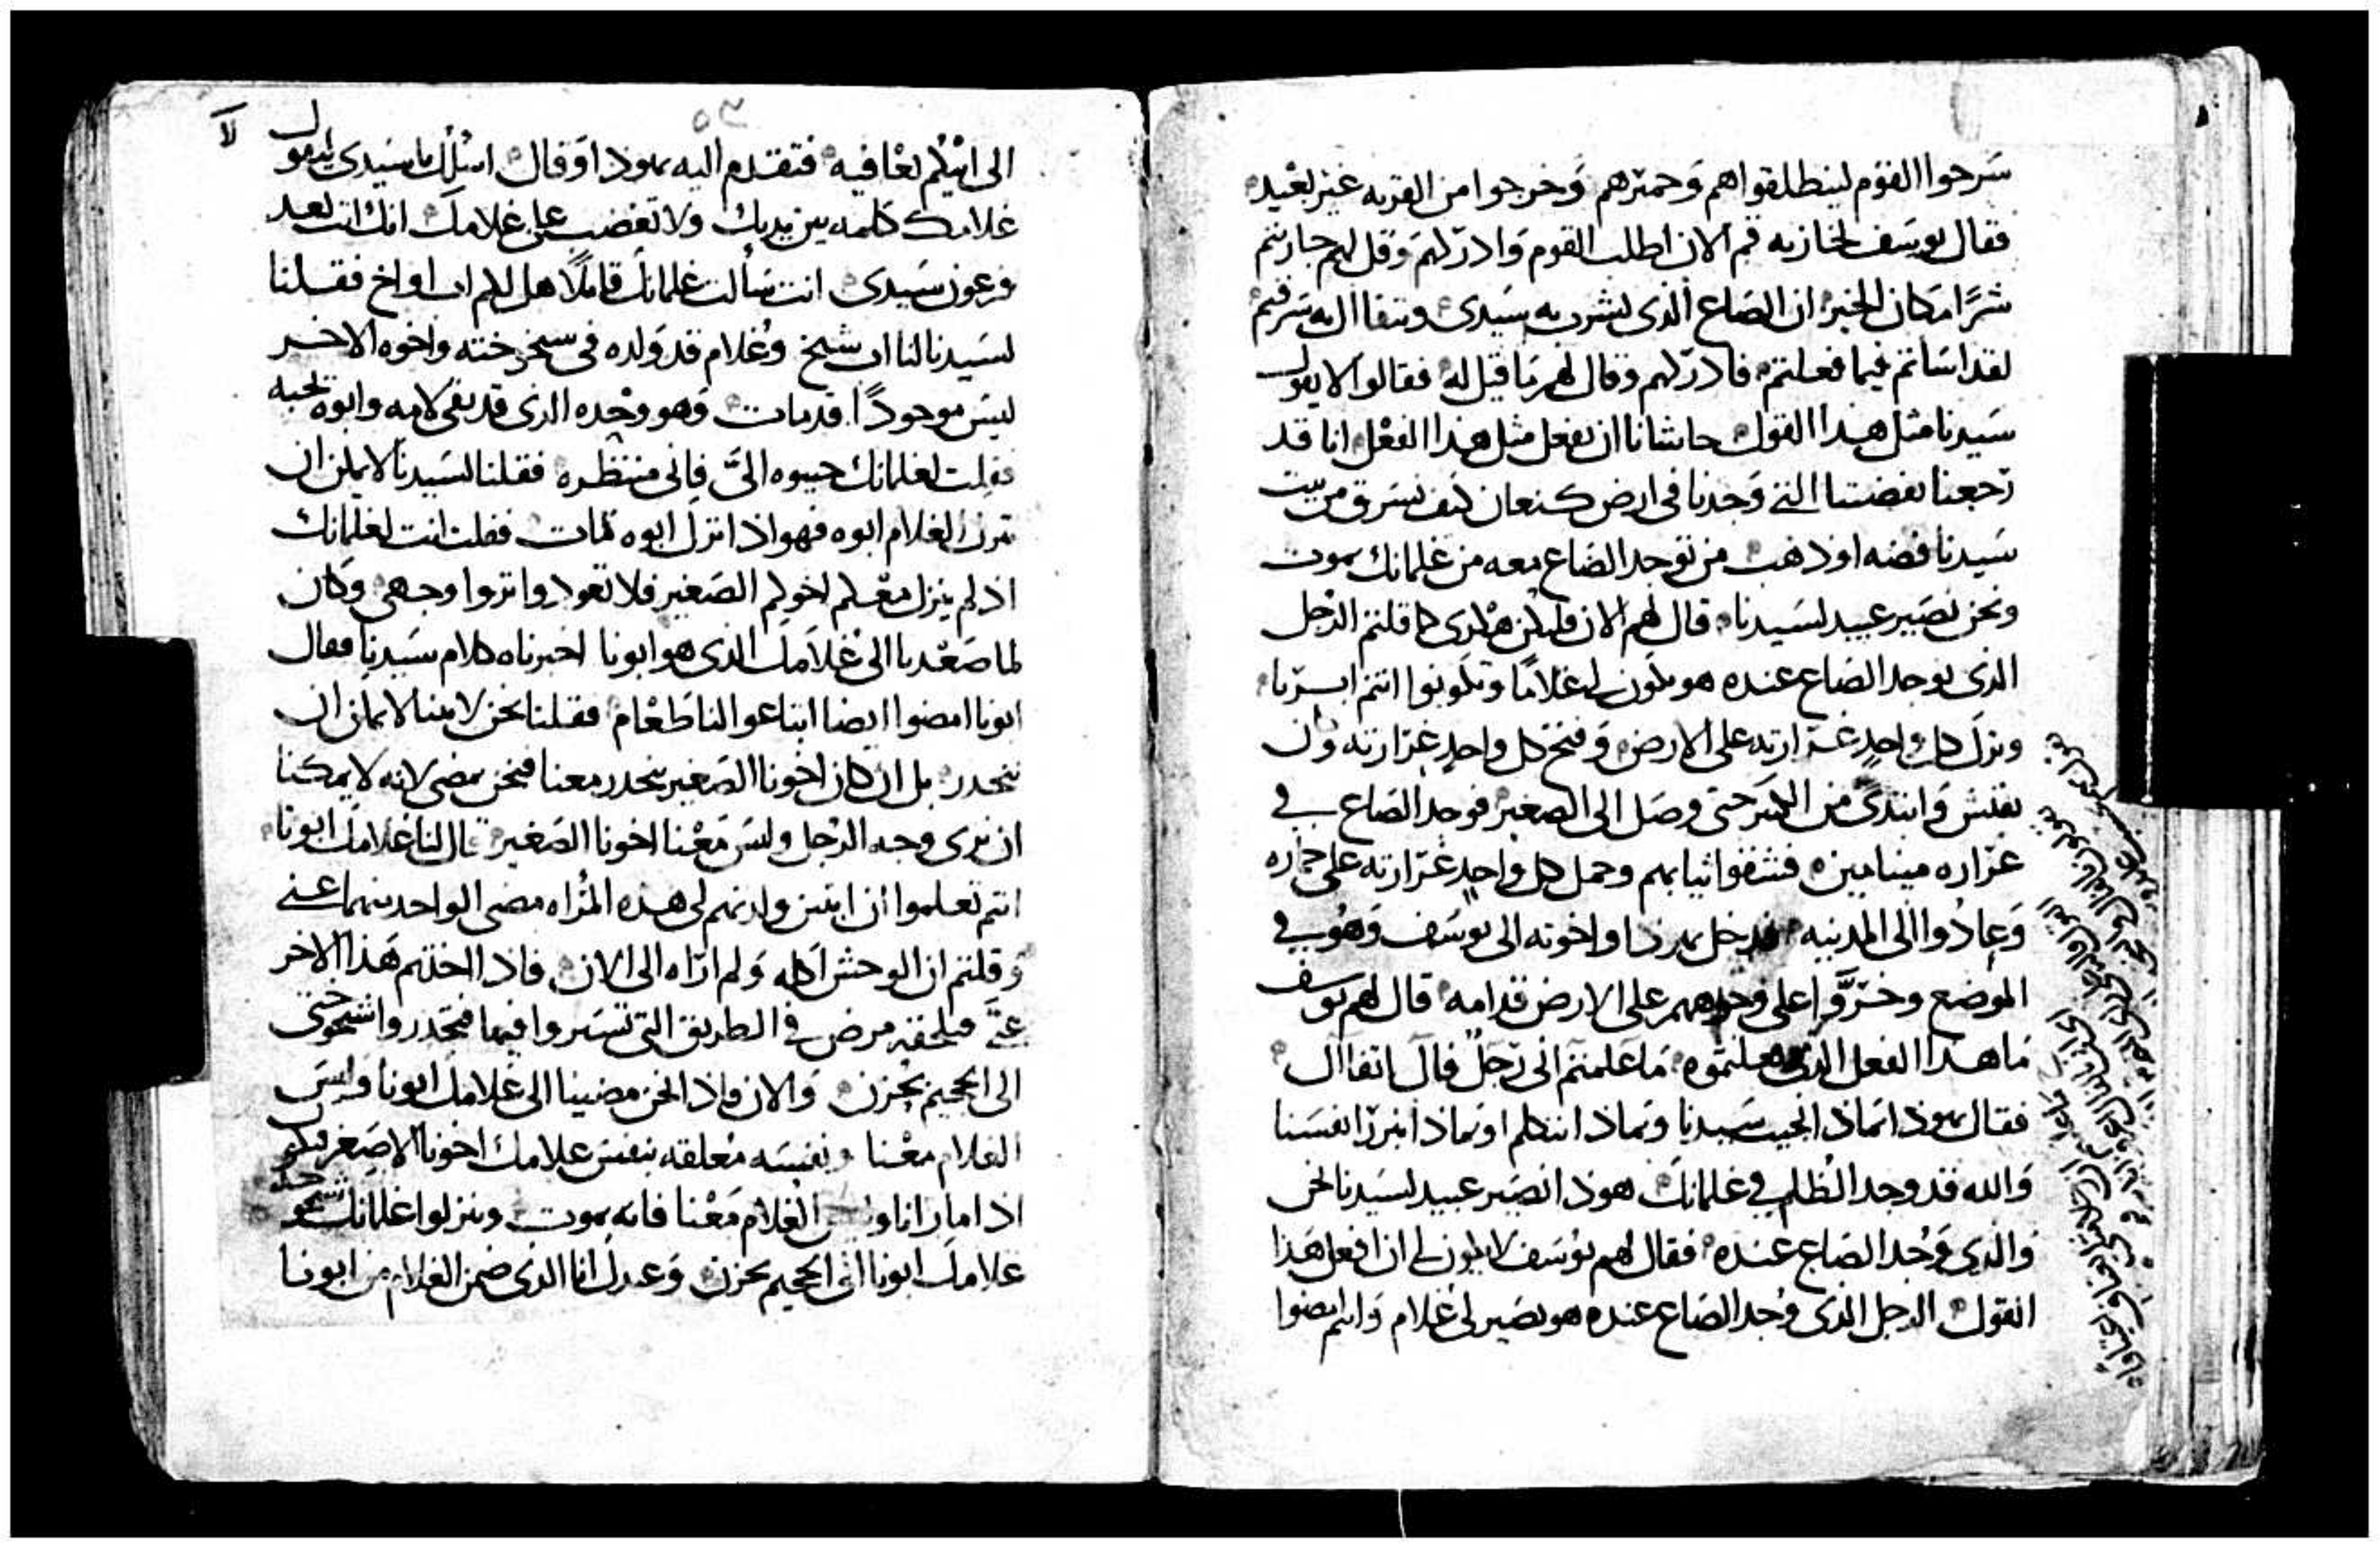 سرحوا القوم لينطلقوا هم وحمترهم وخرجوا من القريه غير بعيده
فقال يوسف لخازنه قم الان اطلب القوم وادركهم وقل لهم جازيتم
شرًا مكان الخير ان الصاع الذى يشرب به سيدى ويتفاال به سرقتم
لقد اساتم فيما فعلتم فادركهم وقال لهم ما قيل له فقالوا لا يقول
سيدنا مثل هدا القول حاشانا ان نفعل مثل هدا الفعل انا قد
رجعنا بفضتنا التى وجدنا فى ارض كنعان كيف نسرق من بيت
سيدنا فضه او ذهب من توجد الصاع معه من غلمانك يموت
ونحن نصير عبيد لسيدنا قال لهم الان فليكن هكدى كما قلتم الرجل
الدى يوجد الصاع عنده هو يكون لى غلامًا وتكونوا انتم ابريا
ونزل كل واحدٍ غرارته على الارض وفتح كل واحدٍ غرارته وان
يفتش وابتدى من الكبير حتى وصل الى الصغير فوجد الصاع فى
غراره مينامين فشقوا ثيابهم وحمل كل واحدٍ غرارته على حماره
وعادوا الى المدينه فدخل يهوذا واخوته الى يوسف وهو فى
الموضع وخروا على وجوههم على الارض قدامه قال لهم يوسف
ما هدا الفعل الدى فعلتموه ما علمتم انى رجلٌ فال اتفاال
فقال يهوذا بماذا نجيب سيدنا وبماذا نتكلم او بماذا نبرر انفسنا
والله قد وجد الظلم فى غلمانك هوذا نصير عبيد لسيدنا نحن
والدى وجد الصاع عنده فقال لهم يوسف لا يكون لى ان افعل هذا
القول الرجل الدى وجد الصاع عنده هو يصير لى غلام وانتم امضوا
الى ابيكم بعافيه فتقدم اليه يهوذا وقال اسئلك يا سيدى يقول
غلامك كلمه بين يديك ولا تغضب على غلامك انك انت بعد
فرعون سيدى انت سألت غلمانك قايلًا هل لكم اب او اخ فقلنا
لسيدنا لنا اب شيخ وغلام قد ولده فى شيخوخته واخوه الاخر
ليس موجودًا قد مات وهو وحده الدى قد بقى لامه وابوه يحبه
فقلت لغلمانك جيبوه الىّ فانى منتظره فقلنا لسيدنا لا يمكن ان
يترك الغلام ابوه فهو اذا ترك ابوه مات فقلت انت لغلمانك
اذ لم ينزل معكم اخوكم الصغير فلا تعودوا تروا وجهى وكان
لما صعدنا الى غلامك الدى هو ابونا اخبرناه كلام سيدنا فقال
ابونا امضوا ايضا ابتاعوا لنا طعام فقلنا نحن لابينا لا يمكن ان
ننحدر بل ان كان اخونا الصغير ينحدر معنا فنحن نمضى لانه لا يمكننا
ان نرى وجه الرجل وليس معنا اخونا الصغير قال لنا غلامك ابونا
انتم تعلموا ان اتنين ولدتهم لى هده المراه مضى الواحد منهما عنى
وقلتم ان الوحش اكله ولم اراه الى الان فاذا اخدتم هذا الاخر
عنى فيلحقه مرض فى الطريق التى تسيروا فيها فتحدروا شيخوختى
الى الجحيم بحزن والان فاذا نحن مضينا الى غلامك ابونا وليس
الغلام معنا ونفسه معلقه بنفس غلامك اخونا الاصغر فيكون
اذا ما رانا و الغلام معنا فانه يموت وينزلوا غلمانك شيخوخة
غلامك ابونا الى الجحيم بحزن وعبدك انا الدى ضمن الغلام من ابونا